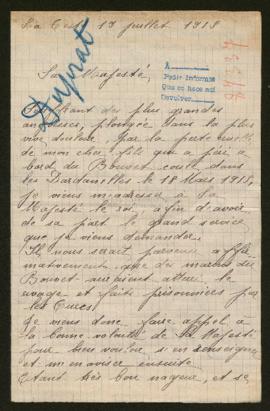 La Teste 13 juillet 1918
Sa Majesté,
Duprat
A
Pedir informes
Que se hace aqui
Devolver
Souffrant des plus grandes
angoisses, plongée dans la plus
vive douleur, par la perte cruelle
de mon cher fils qui a péri à
bord du Bouvet coulé dans
les Dardanelles le 18 Mars 1915,
je viens m'adresser à Sa
Majesté le roi, afin d'avoir
de sa part le grand service
que je viens demander.
Il nous serait parvenu affir
mativement que des marins du
Bouvet auraient atteri le
rivage et faits prisonniers par
les Turcs.
Je viens donc faire appel à
la bonne volonté de Sa Majesté
pour bien vouloir s'en renseigner
et m'en aviser ensuite
Etant très bon nageur, et se